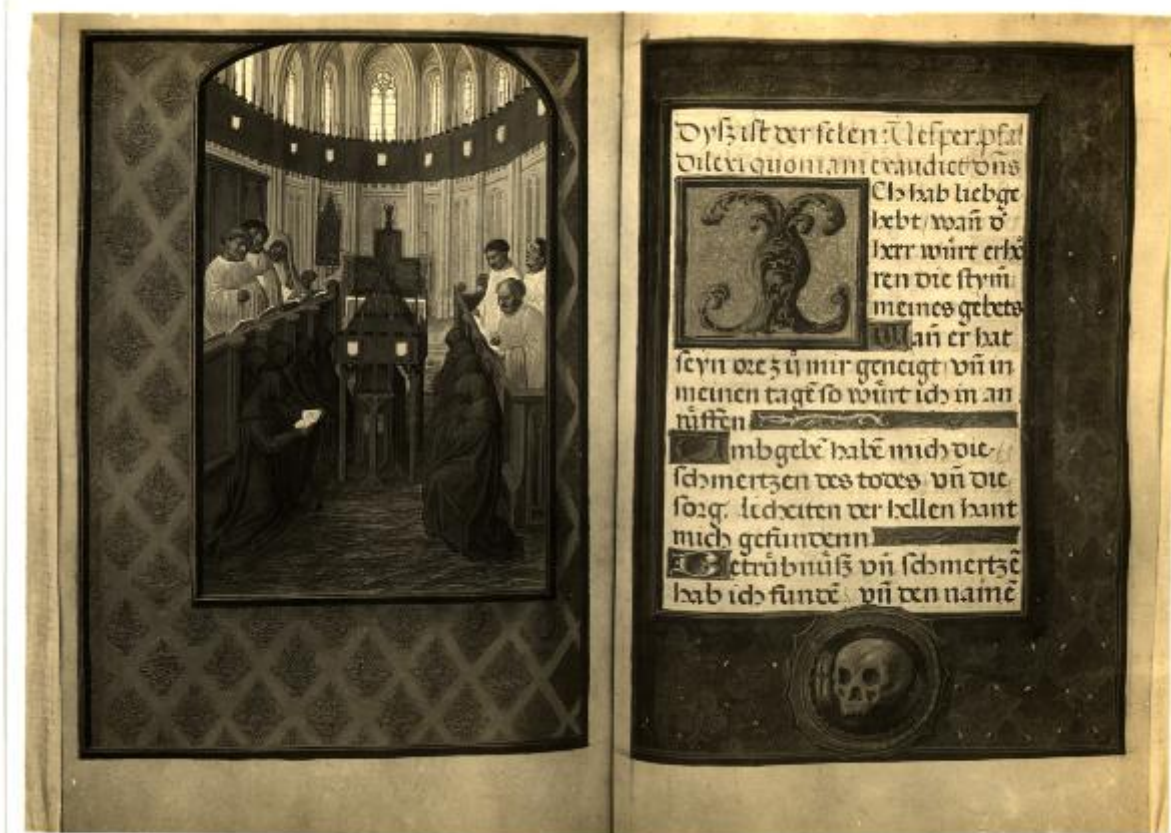 Dyſz iſt der ſelen: Veſper. pſal
Dilexi quoniam exaudiet dn̄s
Ich hab liebge
hebt / wan̄ d
herr wűrt erhő
ren die ſtym̄
meines gebets
Wan̄ er hat
ſeyn ore zů mir geneigt vn̄ in
meinen tagē ſo wűrt ich in an
růffen
Umbgebē habē mich die
ſchmertzen des todes / vn̄ die
ſorg. licheiten der hellen hant
mich gefundenn
Betrűbnűſz vn̄ ſchmertzē
hab ich fundē vn̄ den namē